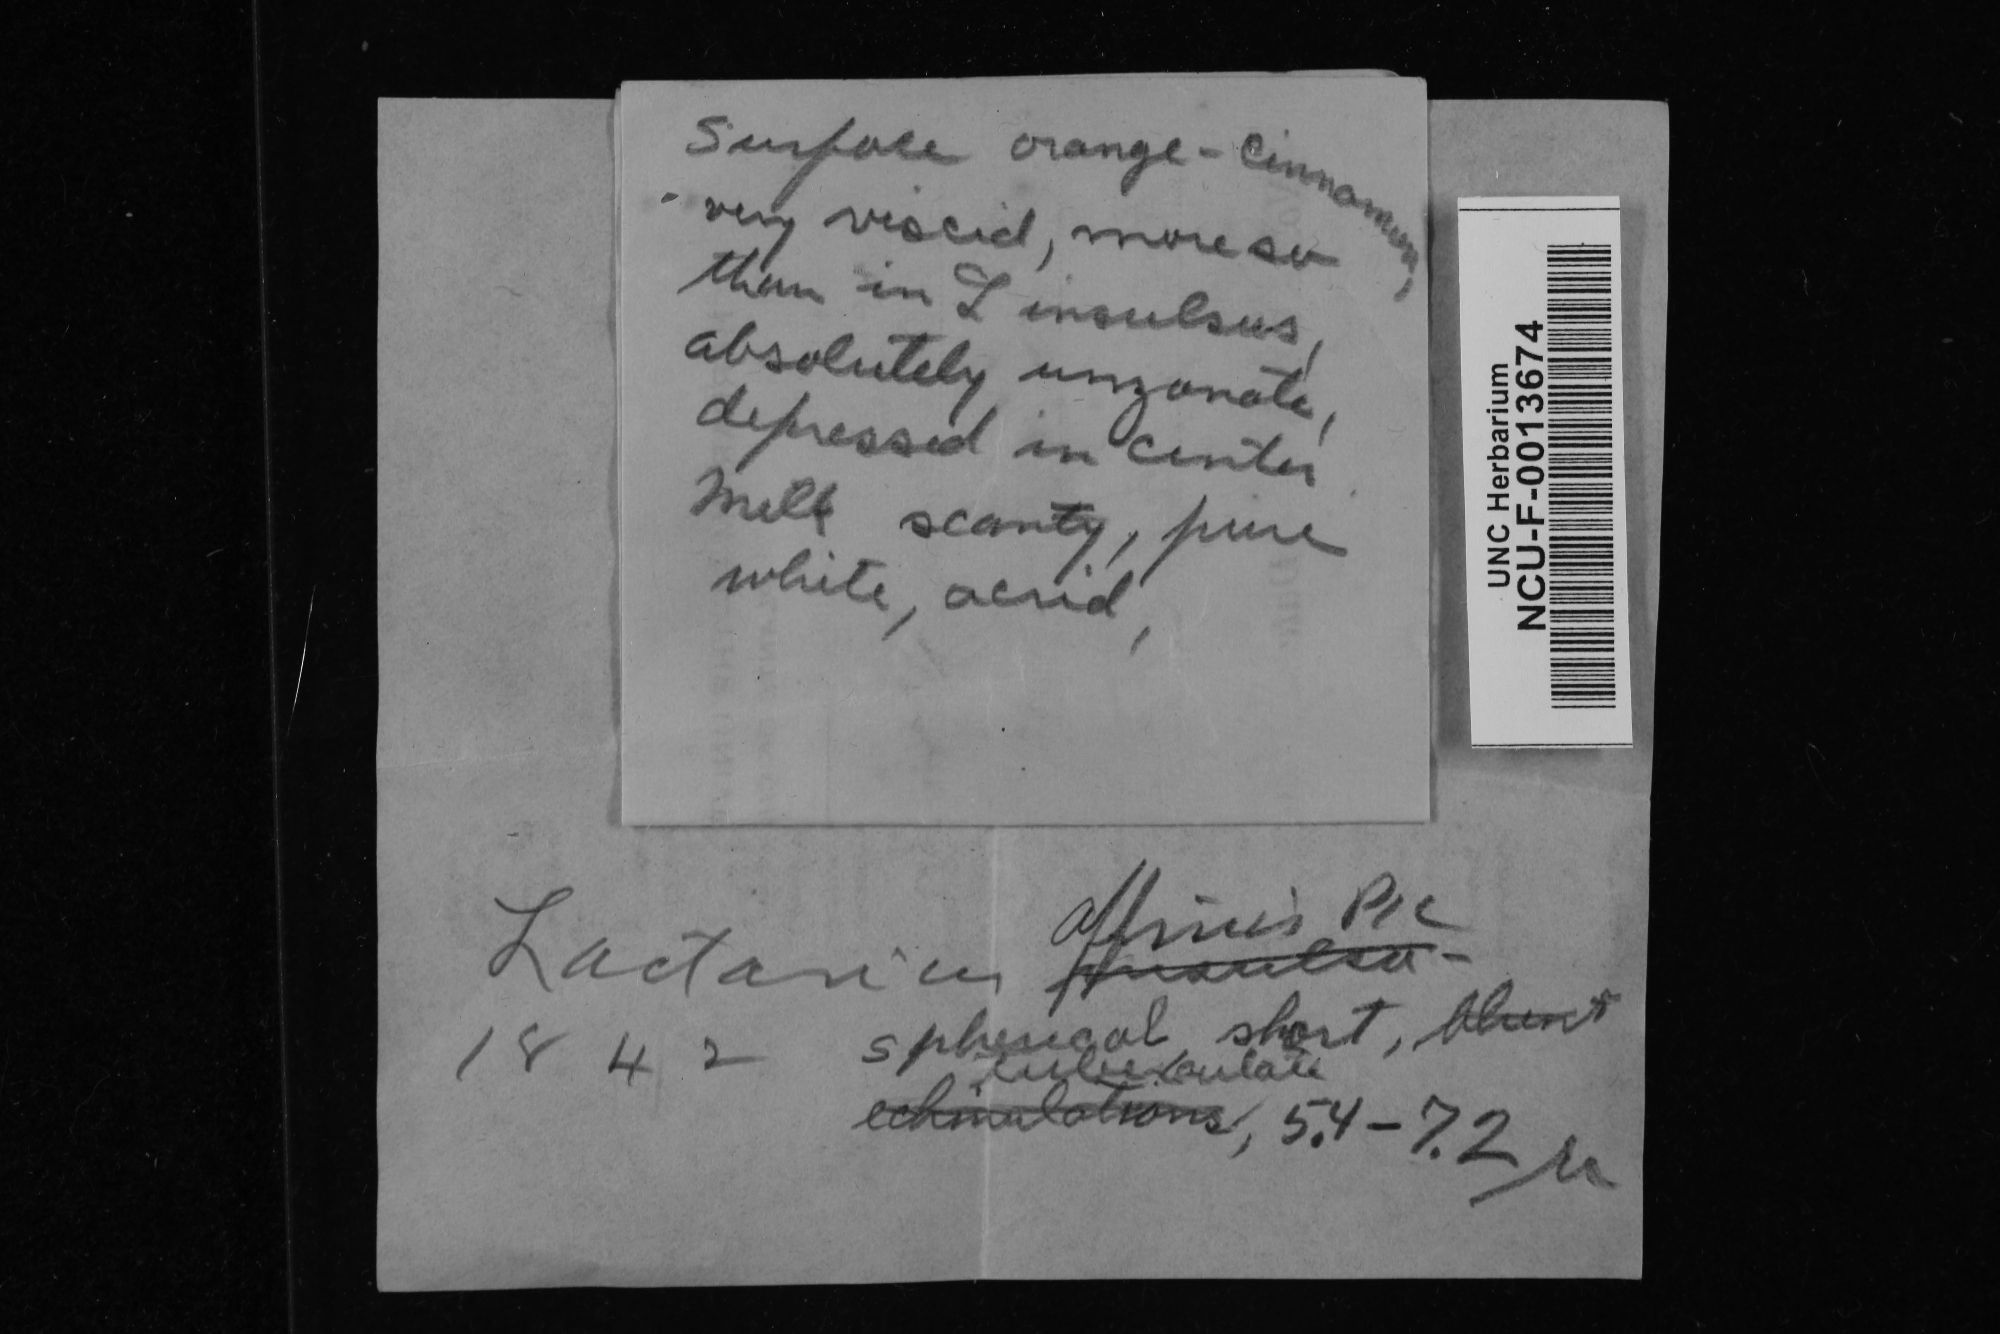 Surface orange-cinnamon,
very viscid, more so
than in L insulsus,
absolutely unzonate,
depressed in center
Milk scanty, pure
white, acrid,
UNC Herbarium
NCU-F-0013674
affinis Pk
Lactarius insulsu-
1842 spherical short, blunt
tuberculate
echinulations, 5.4-7.2 µ